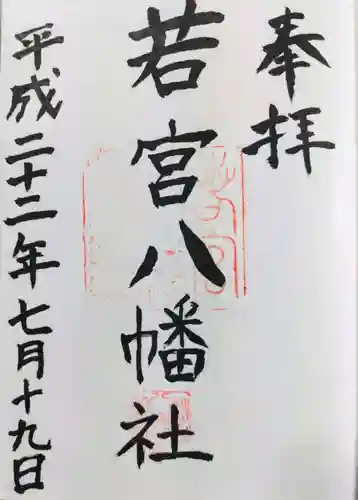 奉拝
若宮八幡社
平成二十二年七月十九日